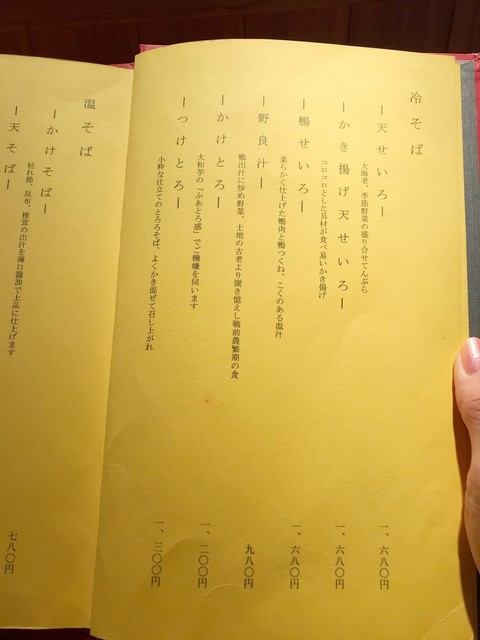 冷そば
ー天せいろー
大海老、季節野菜の盛り合せてんぷら
一、六八〇円
ーかき揚げ天せいろー
コロコロとした具材が食べ易いかき揚げ
一、六八〇円
ー鴨せいろー
柔らかく仕上げた鴨肉と鴨つくね、こくのある温汁
一、六八〇円
ー野良汁ー
鴨出汁に炒め野菜、土地の古老より聞き憶えし戦前農繁期の食
九八〇円
ーかけとろー
大和芋の「ふあとろ感」でご機嫌を伺います
一、二〇〇円
ーつけとろー
小粋な仕立てのとろろそば、よくかき混ぜて召し上がれ
一、三〇〇円
温そば
ーかけそばー
枯れ節、昆布、椎茸の出汁を薄口醤油で上品に仕上げます
七八〇円
ー天そばー